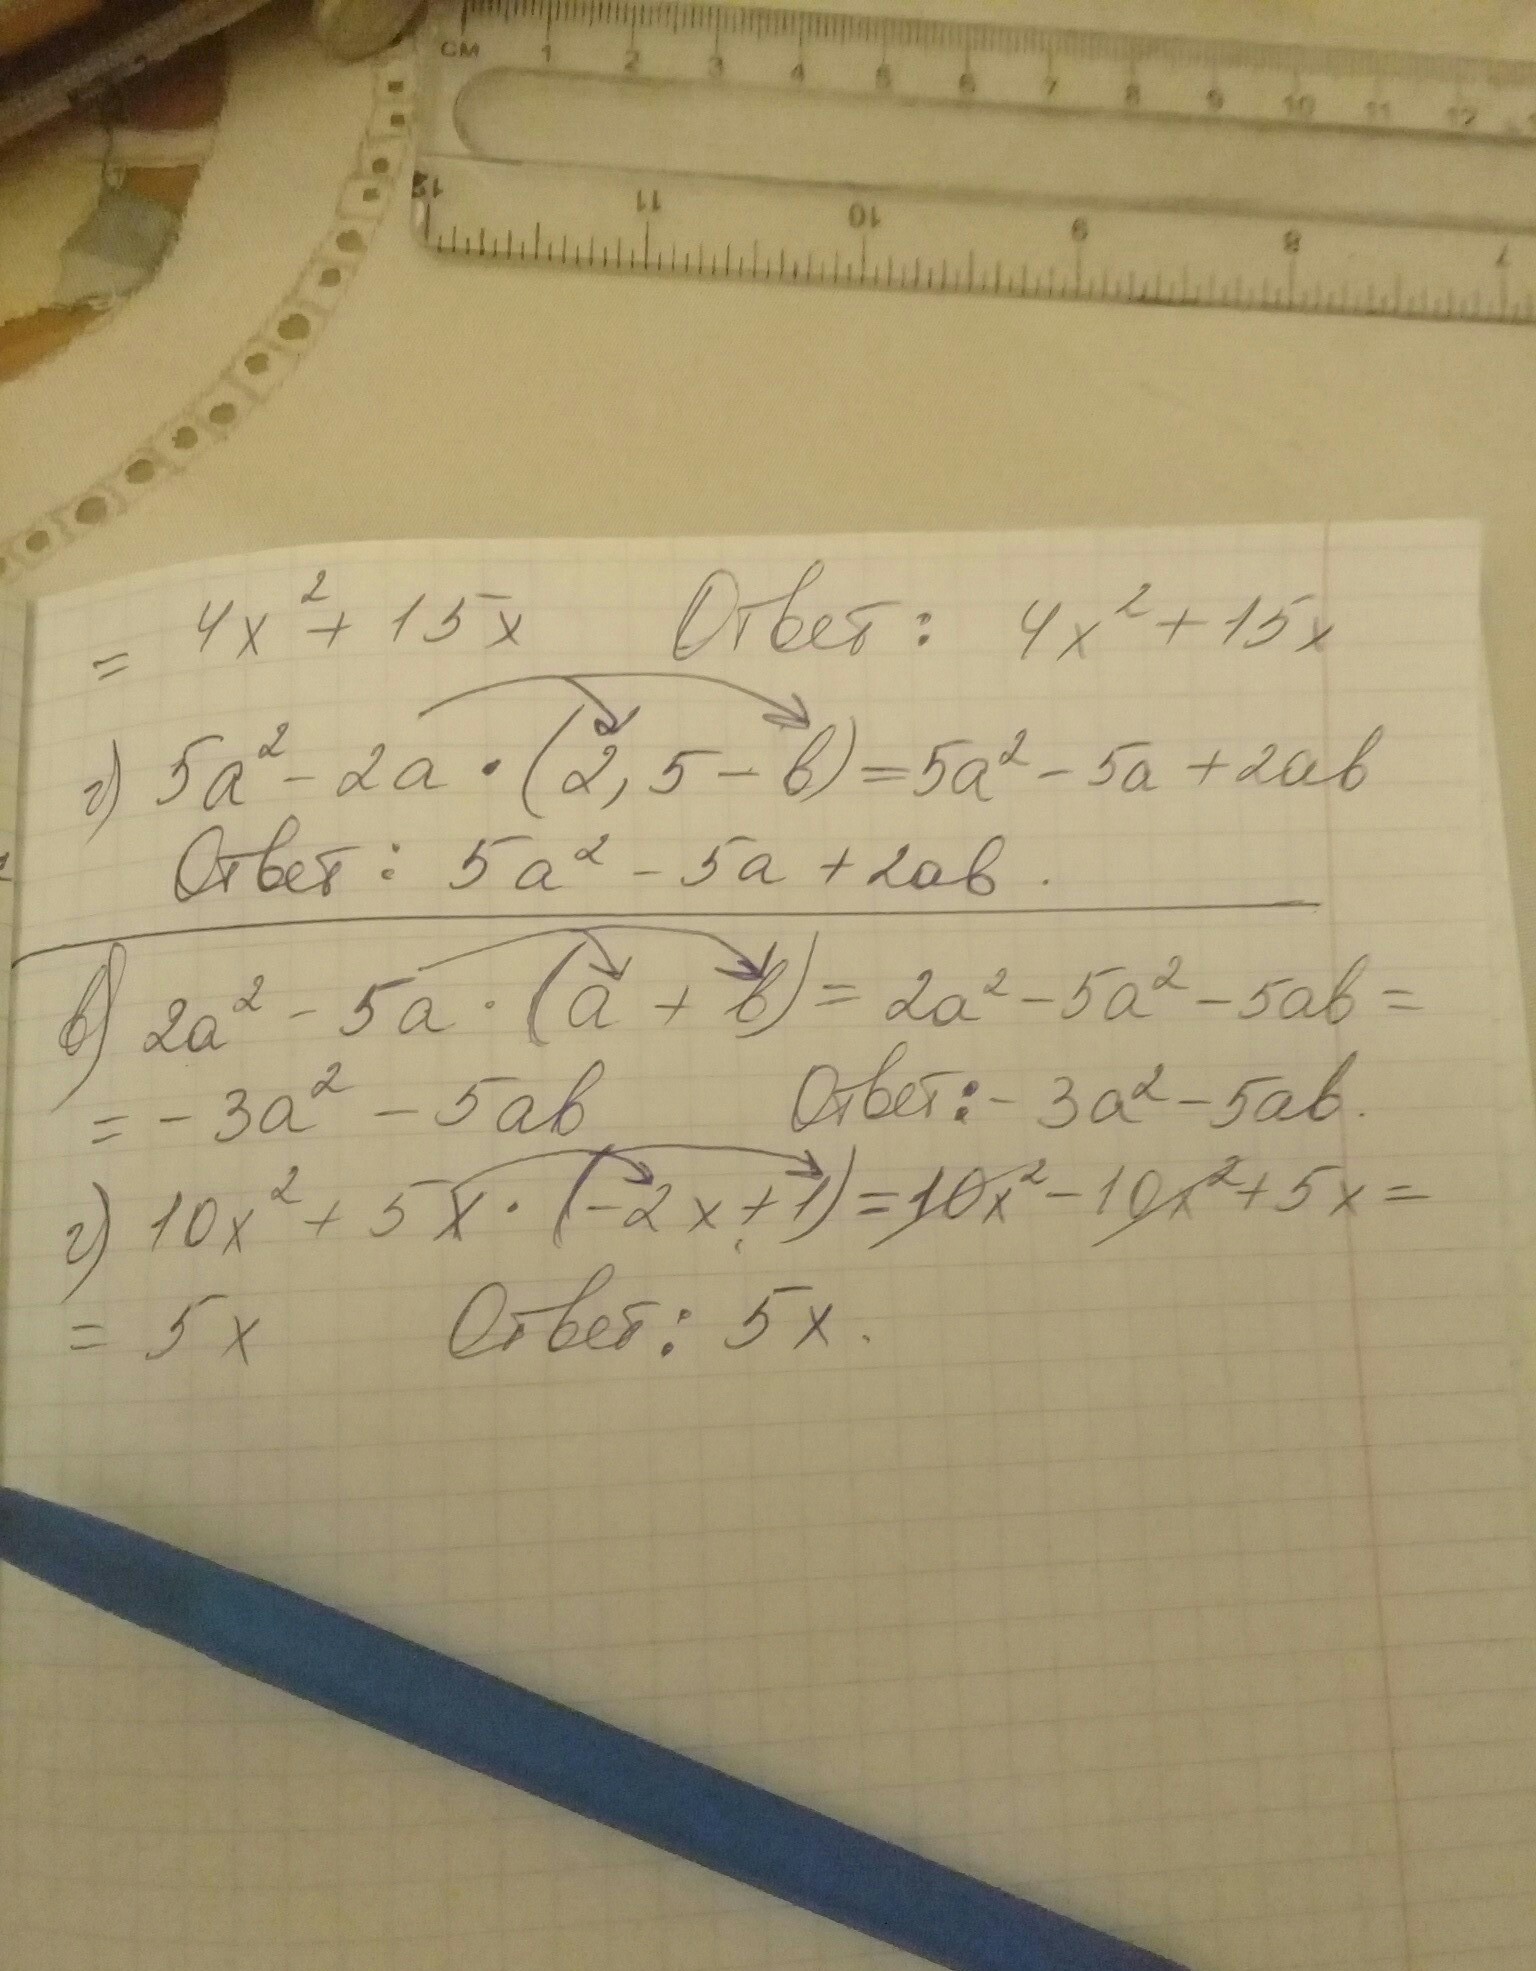 см 1 2 3 4 5 6 7 8 9 10 11 12
12 11 10 9 8 7
= 4x² + 15x Ответ: 4x² + 15x
г) 5a² - 2a · (2,5 - b) = 5a² - 5a + 2ab
Ответ: 5a² - 5a + 2ab.
в) 2a² - 5a · (a + b) = 2a² - 5a² - 5ab =
= -3a² - 5ab Ответ: -3a² - 5ab.
г) 10x² + 5x · (-2x + 1) = 10x² - 10x² + 5x =
= 5x Ответ: 5x.